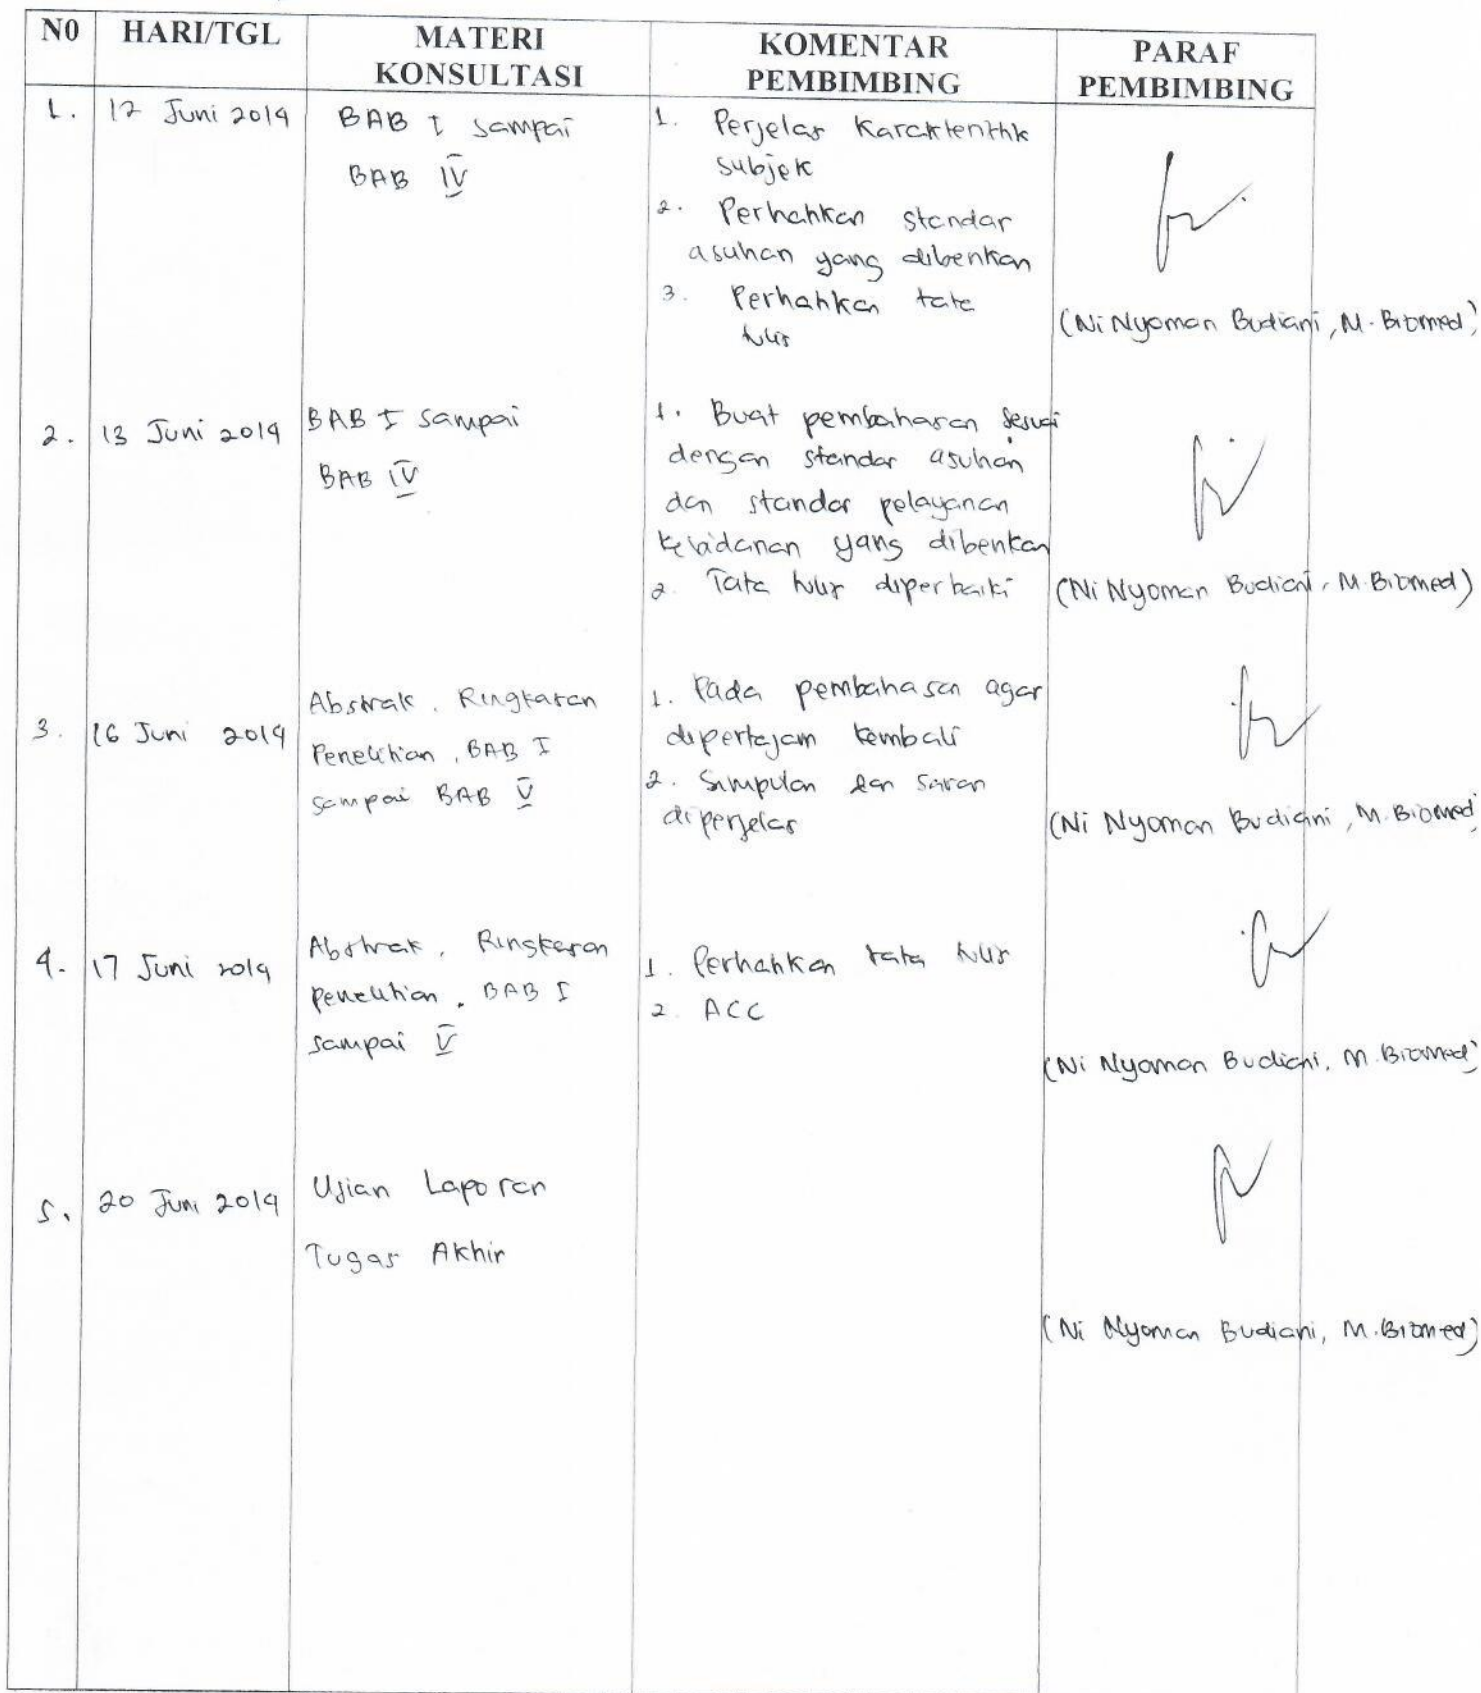 N0 HARI/TGL MATERI KONSULTASI KOMENTAR PEMBIMBING PARAF PEMBIMBING
1. 12 Juni 2019
BAB I sampai
BAB IV
1. Perjelas Karakteristik
subjek
2. Perhatikan standar
asuhan yang diberikan
3. Perhatikan tata
tulis
(Ni Nyoman Budiani, M. Biomed)
2. 13 Juni 2019
BAB I sampai
BAB IV
1. Buat pembahasan sesuai
dengan standar asuhan
dan standar pelayanan
kebidanan yang diberikan
2. Tata tulis diperbaiki
(Ni Nyoman Budiani, M. Biomed)
3. 16 Juni 2019
Abstrak, Ringkasan
Penelitian, BAB I
sampai BAB V
1. Pada pembahasan agar
dipertajam kembali
2. Simpulan dan saran
diperjelas
(Ni Nyoman Budiani, M. Biomed
4. 17 Juni 2019
Abstrak, Ringkasan
penelitian, BAB I
sampai V
1. Perhatikan tata tulis
2. ACC
(Ni Nyoman Budiani, M. Biomed)
5. 20 Juni 2019
Ujian Laporan
Tugas Akhir
(Ni Nyoman Budiani, M. Biomed)